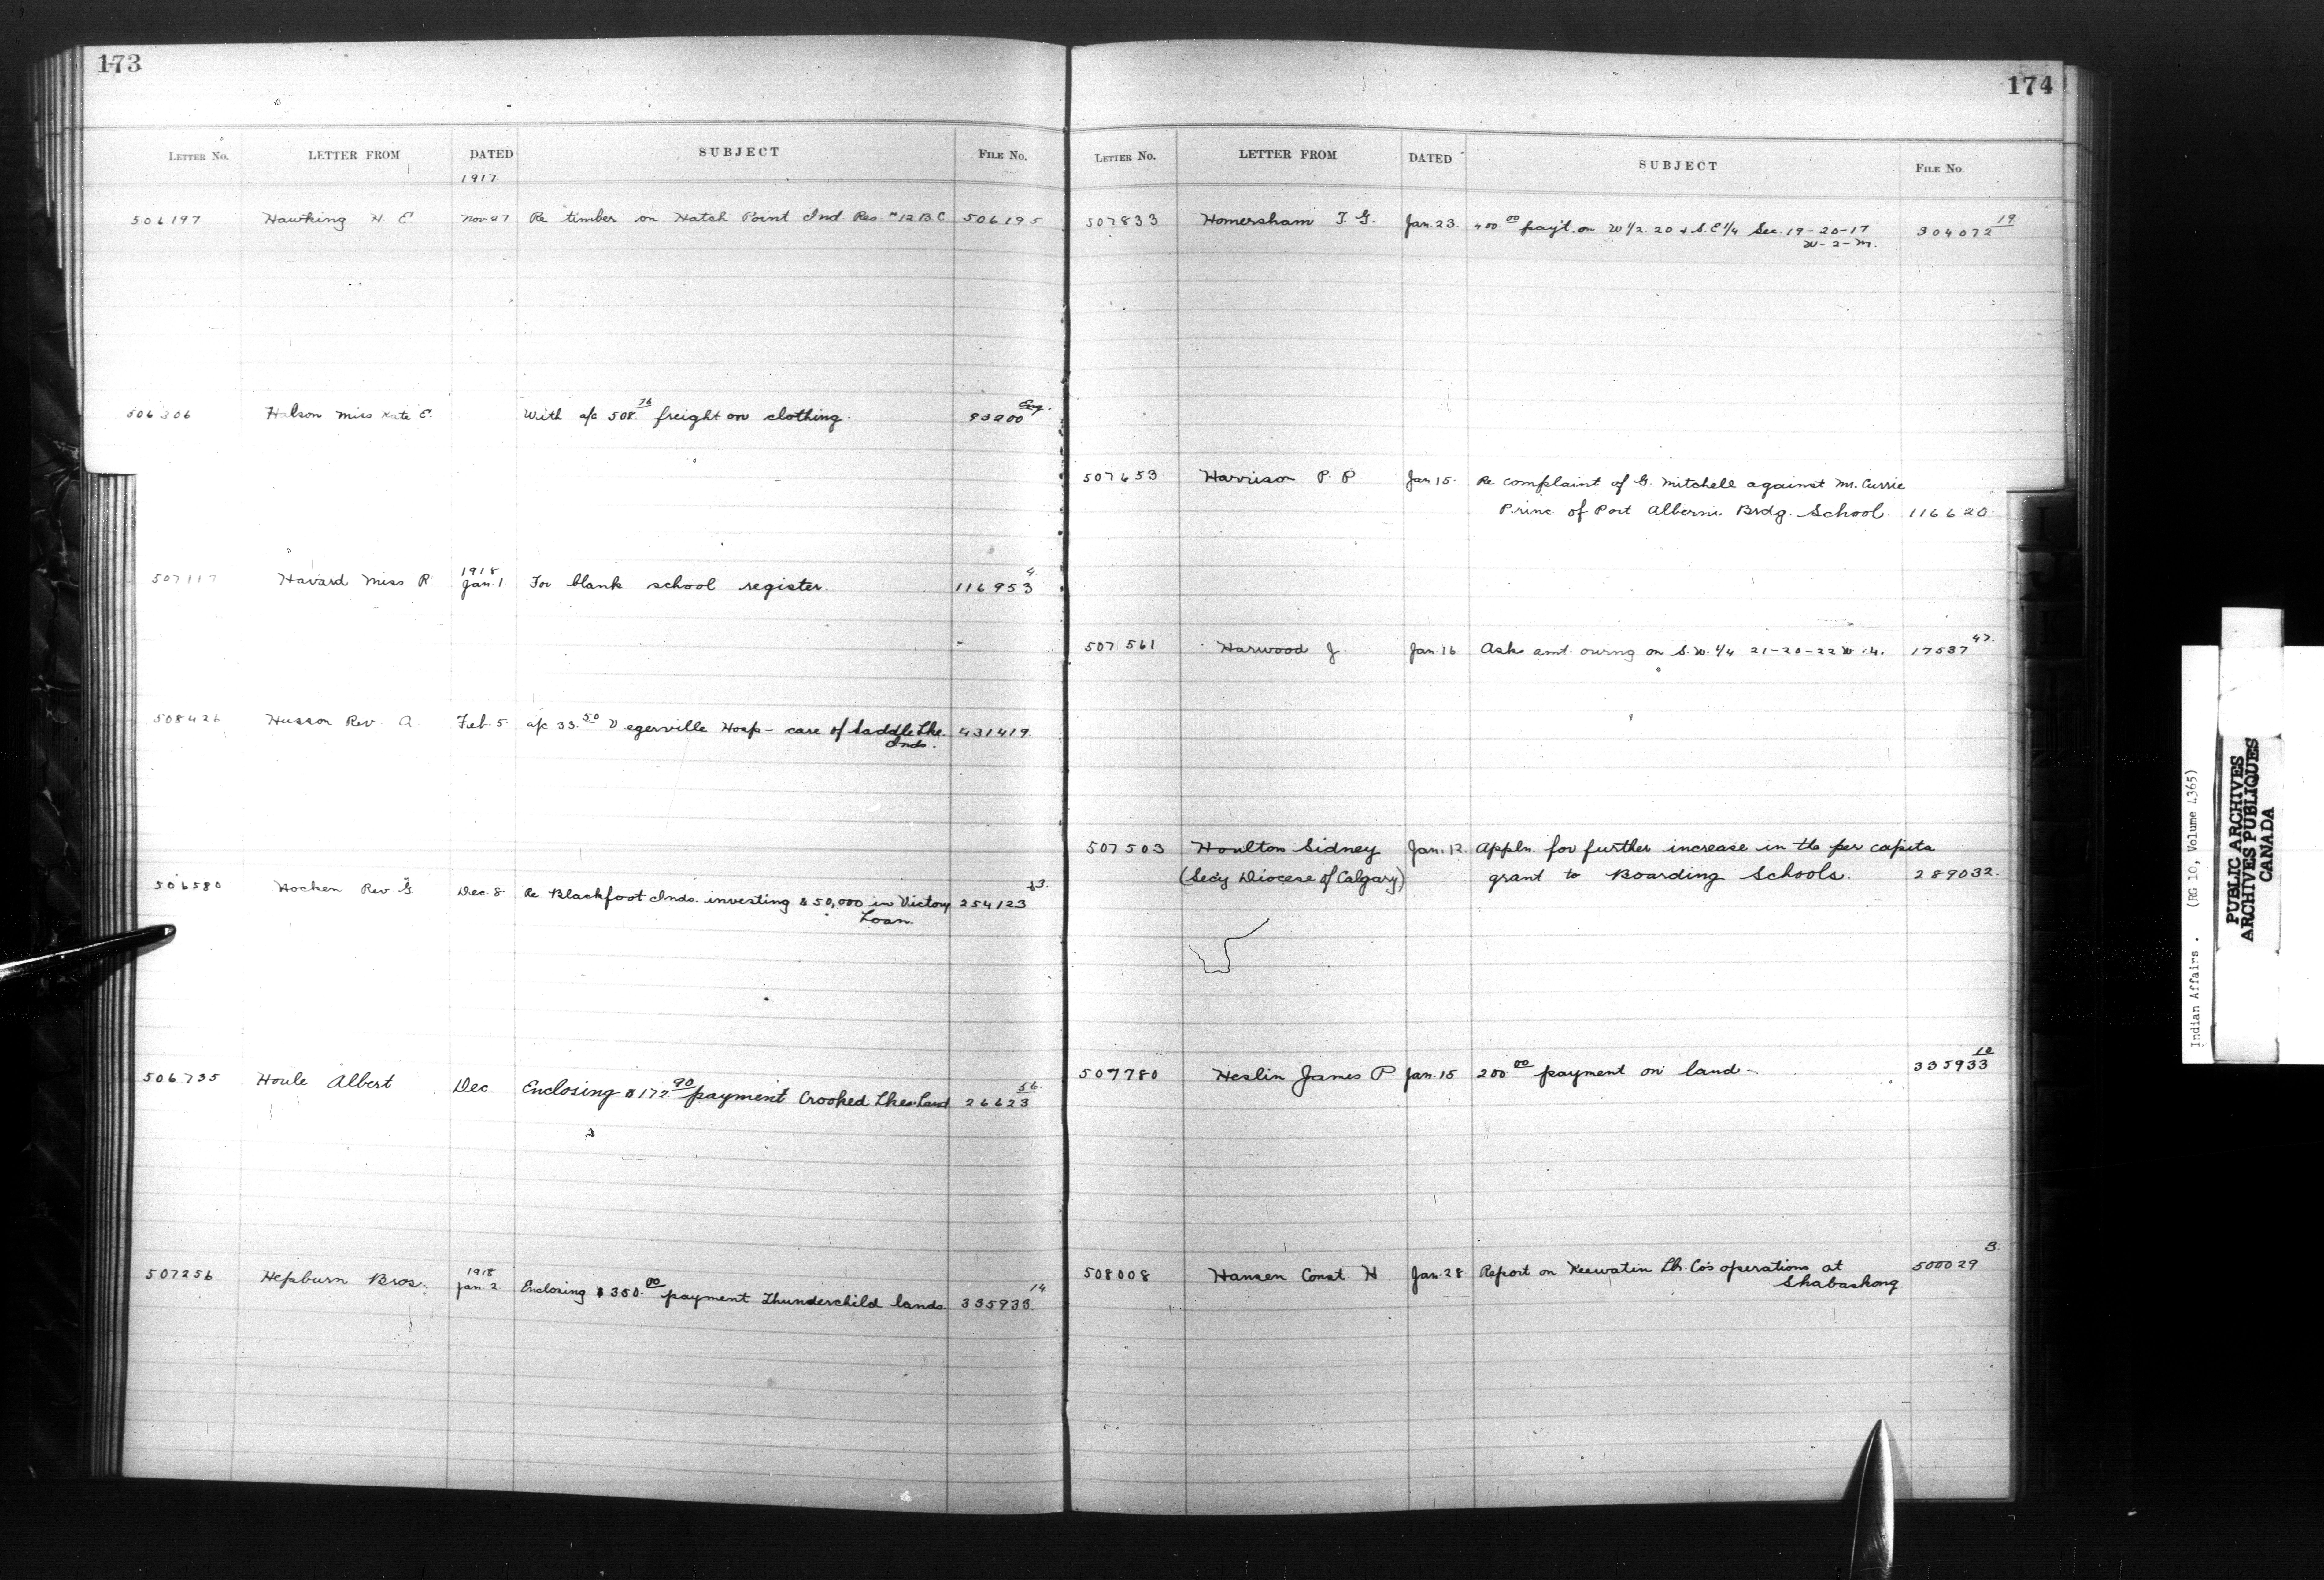 173
LETTER No. LETTER FROM DATED SUBJECT FILE No.
1917
506197 Hawking H. E Nov 27 Re timber on Hatch Point Ind. Res. #12 B.C. 506195
506306 Halson Miss Kate E. With a/c 508.76 freight on clothing. 93200
1918
507117 Havard Miss R. Jan. 1. For blank school register. 116953 4.
508426 Husson Rev. A. Feb. 5 a/c 33.50 Vegerville Hosp - care of Saddle Lke. 431419
Inds.
506580 Hocken Rev. G Dec. 8 Re Blackfoot Inds. investing $50,000 in Victory 254123
Loan.
506735 Houle Albert Dec. Enclosing $177 90 payment Crooked Lkes Land 26623 56.
1918
507256 Hepburn Bros. Jan. 2 Enclosing $350.00 payment Thunderchild lands. 335933 14
174
LETTER No. LETTER FROM DATED SUBJECT FILE No
507833 Homersham T. G. Jan. 23. 400.00 payt. on W 1/2. 20 & S.E 1/4 Sec. 19-20-17 304072 19
W-2-M.
507653 Harrison P. P. Jan 15. Re complaint of G. Mitchell against Mr. Currie
Princ of Port Alberni Brdg. School. 116620.
507561 Harwood J. Jan. 16 Asks amt. owing on S.W. 1/4 21-20-22 W. 4. 17537 47.
507503 Houlton Sidney Jan. 12. Appln. for further increase in the per capita
(Secy Diocese of Calgary) grant to Boarding Schools. 289032.
507780 Heslin James P Jan. 15 200 00 payment on land - 335933 10
508008 Hansen Const. H. Jan. 28 Report on Keewatin Lbr. Co's operations at 500029 3.
Shabaskong.
Indian Affairs. (RG 10, Volume 4365)
PUBLIC ARCHIVES
ARCHIVES PUBLIQUES
CANADA